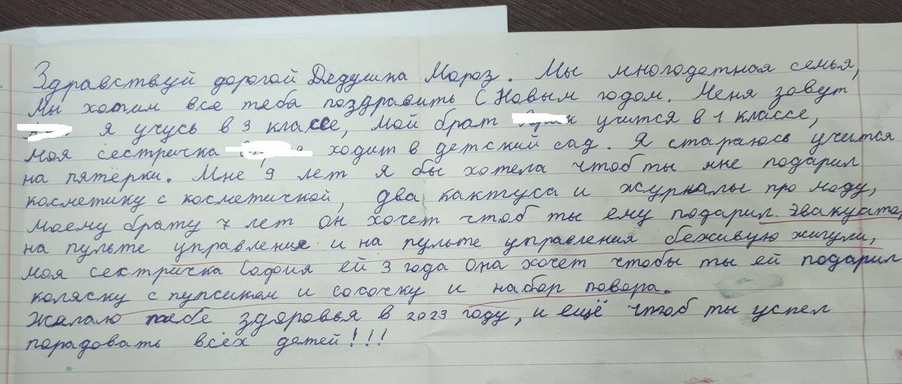 Здравствуй дорогой Дедушка Мороз. Мы многодетная семья,
Мы хотим все тебя поздравить С Новым годом. Меня зовут
я учусь в 3 классе, мой брат учится в 1 классе,
моя сестричка ходит в детский сад. Я стараюсь учится
на пятёрки. Мне 9 лет я бы хотела чтоб ты мне подарил
косметику с косметичкой, два кактуса и журналы про моду,
моему брату 7 лет он хочет чтоб ты ему подарил эвакуатор,
на пульте управления и на пульте управления беживую жигули,
моя сестричка София ей 3 года она хочет чтобы ты ей подарил
коляску с пупсиком и сосочку и набор повора.
Желаю тебе здоровья в 2023 году, и ещё чтоб ты успел
порадовать всех детей!!!